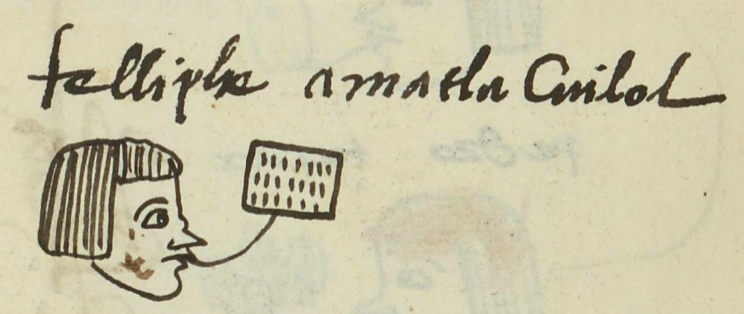 felliphe amatla Cuilol